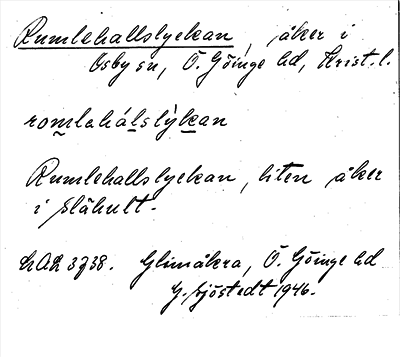 Rumlehallslyckan, åker i
Osby sn, Ö. Göinge hd, Krist. l.
romlahálslỳkan
Rumlehallslyckan, liten åker
i Slähult.
LAL 3738. Glimåkra, Ö. Göinge hd
G. Sjöstedt 1946.